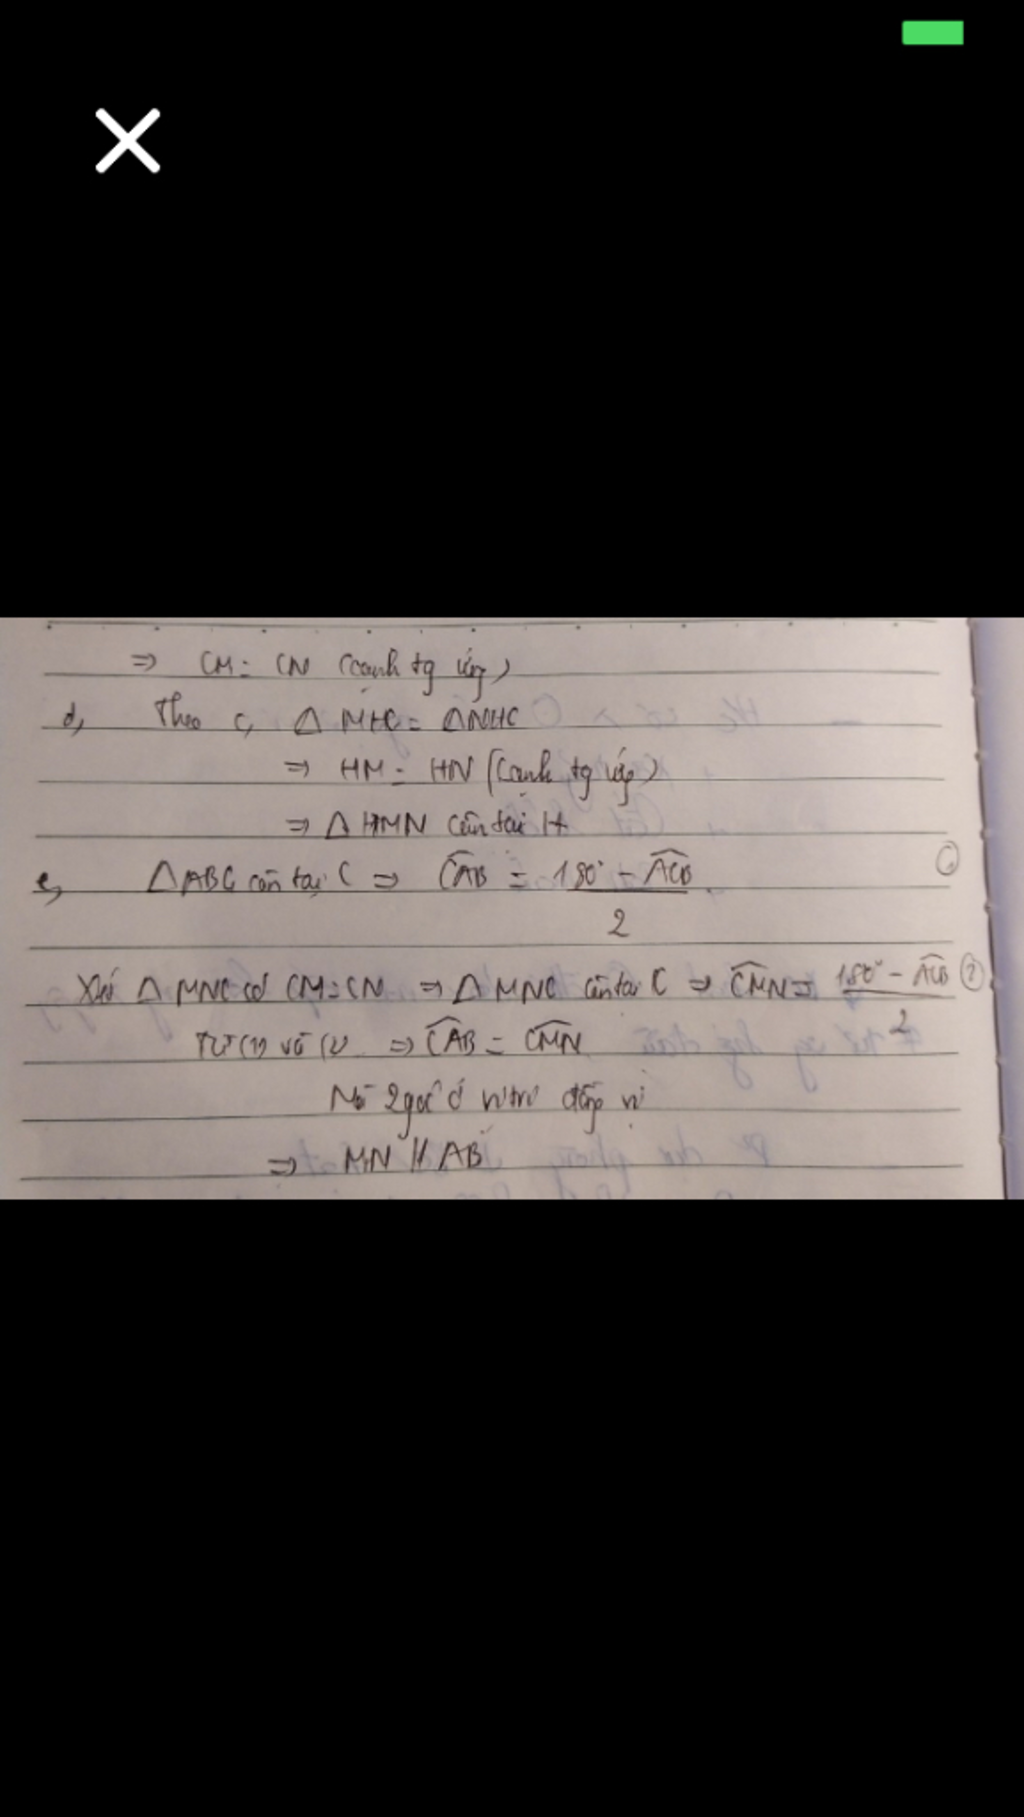 ⇒ CM = CN (cạnh tg ứng)
d, Theo c, Δ MHC = ΔNHC
⇒ HM = HN (cạnh tg ứng)
⇒ Δ HMN cân tại H
e, ΔABC cân tại C ⇒ CAB = 180° - ACB (1)
2
Xét Δ MNC có CM = CN ⇒ Δ MNC cân tại C ⇒ CMN = 180° - ACB (2)
2
Từ (1) và (2) ⇒ CAB = CMN
Mà 2 góc ở vị trí đồng vị
⇒ MN // AB